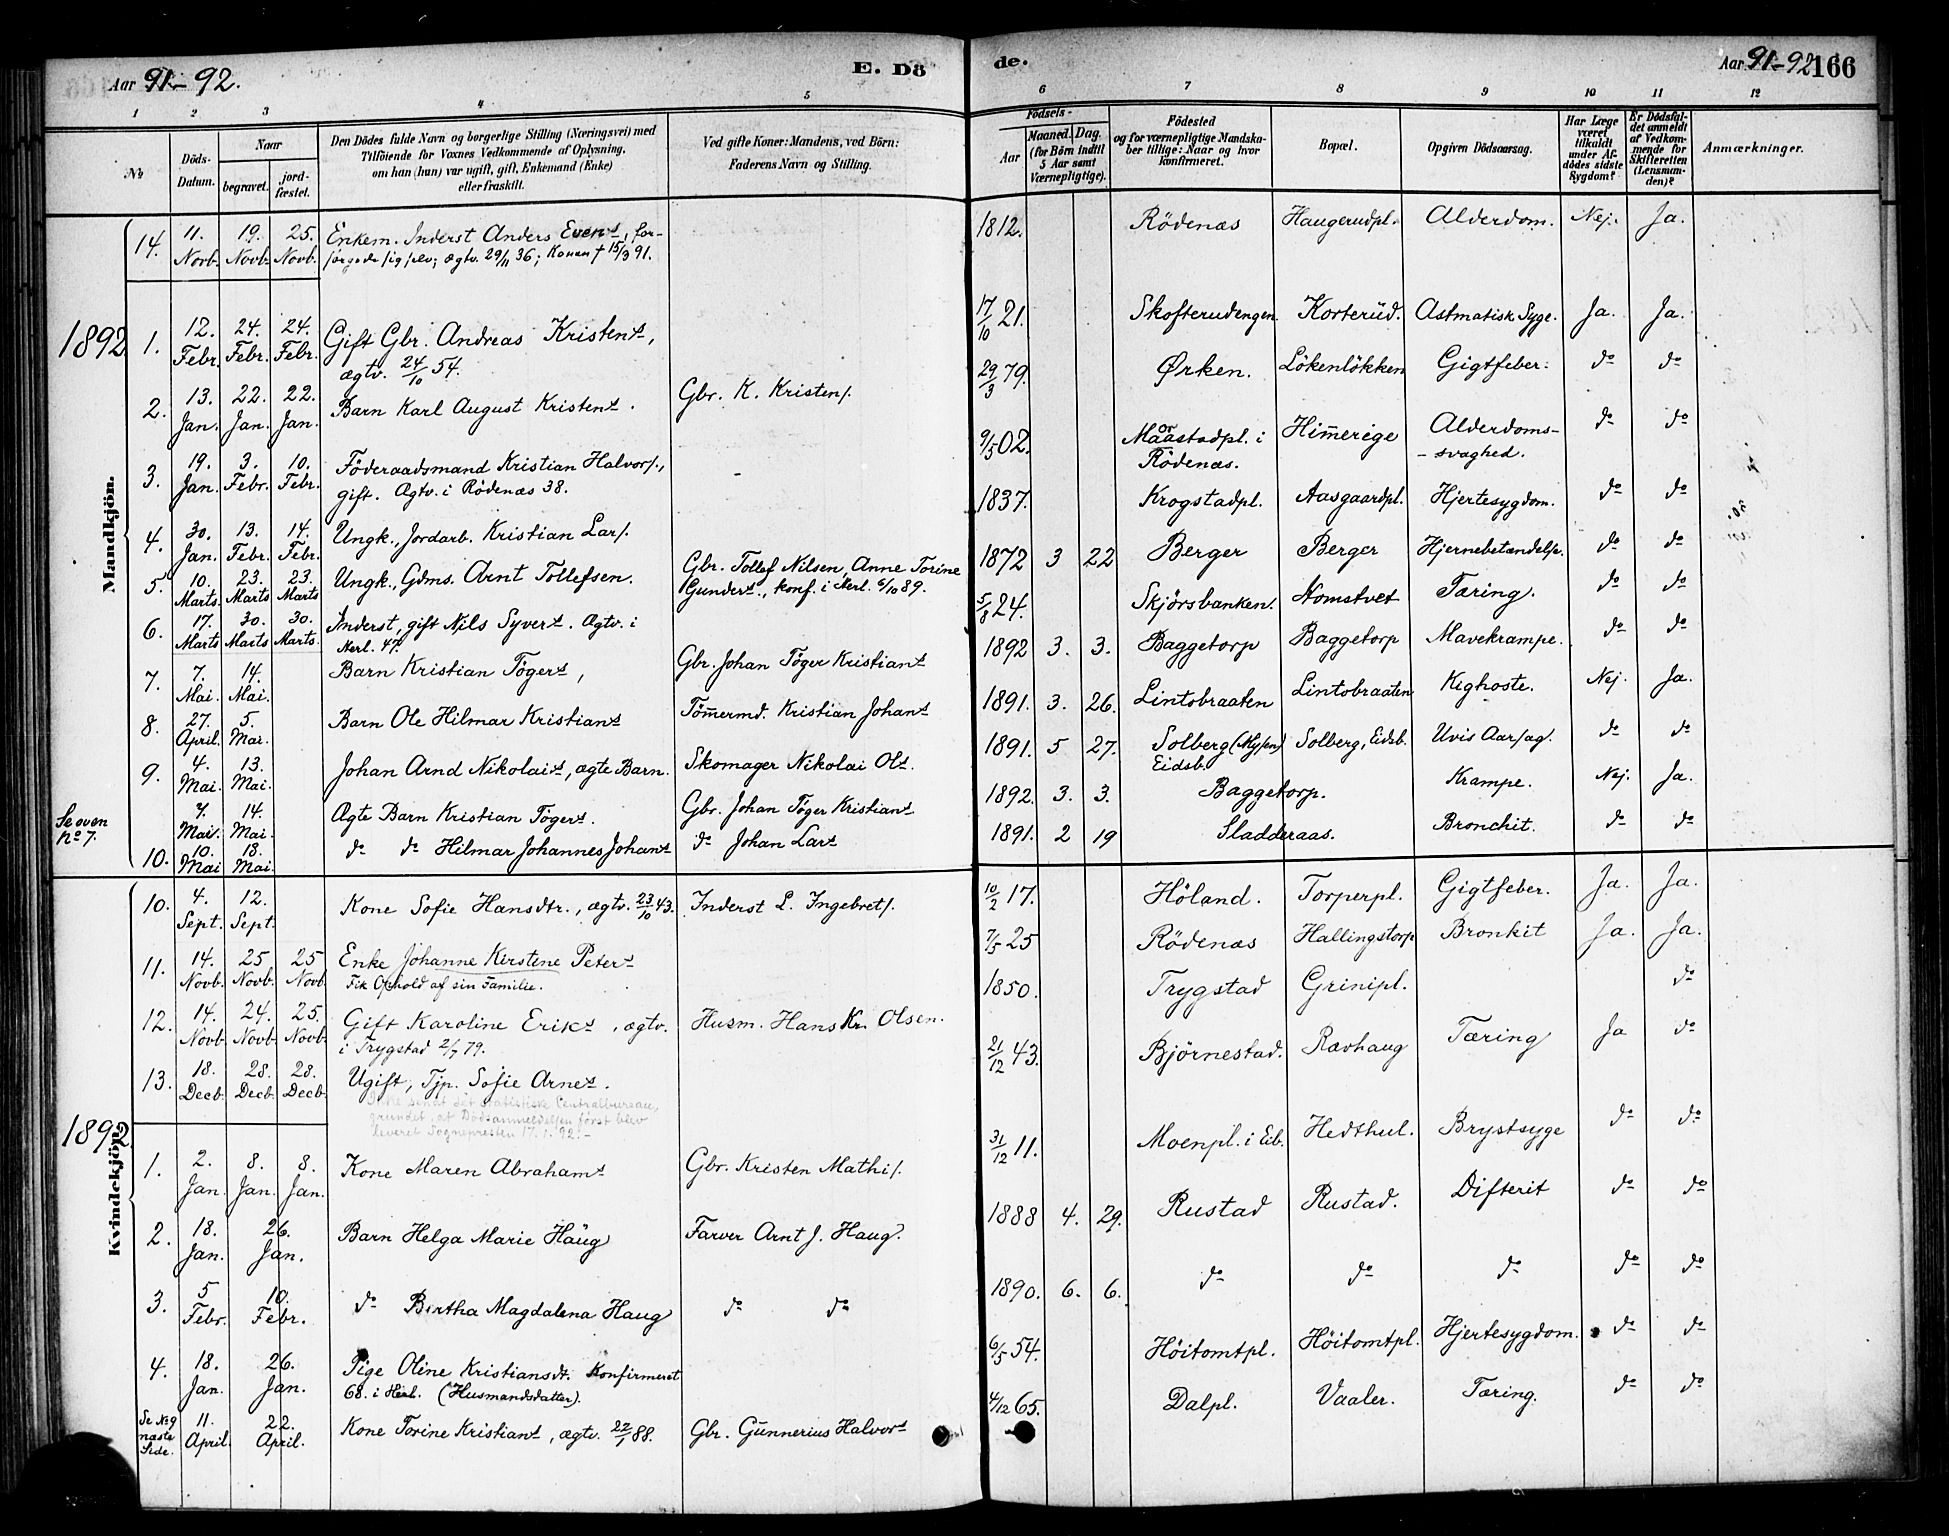 Aar 91-92.
E. Dö
de.
Aar 91-92 166
1 2 3 4 5 6 7 8 9 10 11 12
No
Döds-Datum.
Naar
begravet.
jord-fæstet.
Den Dödes fulde Navn og borgerlige Stilling (Næringsvei) med
Tilföiende for Voxnes Vedkommende af Oplysning,
om han (hun) var ugift, gift, Enkemand (Enke)
eller fraskilt.
Ved gifte Koner: Mandens, ved Börn:
Faderens Navn og Stilling.
Födsels-
Aar
Maaned. Dag.
(for Börn indtil
5 Aar samt
Værnepligtige).
Födested
og for værnepligtige Mandska-
ber tillige: Naar og hvor
konfirmeret.
Bopæl.
Opgiven Dödsaarsag.
Har Læge
været
tilkaldt
under Af-
dödes sidste
Sygdom?
Er Dödsfal-
det anmeldt
af Vedkom-
mende for
Skifteretten
(Lensman-
den)?
Anmærkninger.
Mandkjön.
14. 11. Novb. 19. Novb. 25. Novb. Enkem. Inderst Anders Evens, for- 1812. Rödenæs Haugerudpl. Alderdom. Nej. Ja.
sørgede sig selv; ægtv. 29/11 36; Konen † 15/3 91.
1892
1. 12. Febr. 24. Febr. 24. Febr. Gift Gbr. Andreas Kristens, 17/10 21. Skofterudengen. Korterüd. Astmatisk Syge. Ja. Ja.
ægtv. 24/10 54.
2. 13. Jan. 22. Jan. 22. Jan. Barn Karl August Kristens. Gbr. K. Kristens. 29/3 79. Ørken. Lökenlökken Gigtfeber. do do
3. 19. Jan. 3. Febr. 10. Febr. Föderaadsmand Kristian Halvors., 9/5 02. Maastadpl. i Rödenæs. Him̅erige Alderdoms-svaghed. do do
gift. Ægtv. i Rödenæs 38.
4. 30. Jan. 13. Febr. 14. Febr. Ungk., Jordarb. Kristian Lars. 1837. Krogstadpl. Aasgaardpl. Hjertesygdom. do do
5. 10. Marts. 23. Marts 23. Marts Ungk., Gdms. Arnt Tollefsen. Gbr. Tollef Nilsen, Anne Torine 1872 3 22 Berger Berger Hjernebetændelse. do do
Gunders., konf. i Herl. 6/10 89.
6. 17. Marts 30. Marts 30. Marts. Inderst, gift Nils Syvers. Ægtv. i 5/8 24. Skjörsbanken. Homstvet Tæring. do do
Herl. 47.
7. 7. Mai. 14. Mai. Barn Kristian Tögers, Gbr. Johan Töger Kristians 1892 3. 3. Baggetorp Baggetorp Mavekrampe. do do
8. 27. April. 5. Mai. Barn Ole Hilmar Kristians Töm̅ermd. Kristian Johans 1891. 3. 26. Lintobraaten Lintobraaten Kighoste. Nej. Ja.
9. 4. Mai. 13. Mai. Johan Arnd Nikolais, ægte Barn. Skomager Nikolai Ols. 1891. 5 27. Solberg (Mysen) Eidsb. Solberg, Eidsb. Uvis Aarsag. do do
Se oven No 7. 7. Mai. 14. Mai. Ægte Barn Kristian Tögers. Gbr. Johan Töger Kristians 1892. 3. 3. Baggetorp. Krampe. Nej. Ja.
10. 10. Mai 18. Mai. do do Hilmar Johannes Johans do Johan Lars 1891. 2 19 Sladderaas. Bronchit. do do
Kvindekjön.
10. 4. Sept. 12. Sept. Kone Sofie Hansdtr., ægtv. 23/10 43. Inderst L. Ingebrets. 10/2 17. Höland. Torperpl. Gigtfeber. Ja. Ja.
11. 14. Novb. 25 Novb. 25 Novb. Enke Johanne Kirstene Peters 7/5 25 Rödenæs Hallingstorp Bronkit Ja. Ja.
Fik Ophold af sin Familie.
12. 14. Novb. 24. Novb. 25. Novb. Gift Karoline Eriks, ægtv. Husm. Hans Kr. Olsen. 1850. Trygstad Grinipl. do
i Trygstad 2/7 79.
13. 18. Decb. 28. Decb. 28. Decb. Ugift, Tjp. Sofie Arnes. 21/12 43. Björnestad. Rævhaug Tæring Ja do
Ikke sendt det statistiske Centralbureau,
grundet, at Dödsanmeldelsen först blev
leveret Sognepresten 17.1.92.-
1892
1. 2. Jan. 8. Jan. 8. Jan. Kone Maren Abrahams Gbr. Kristen Mathis. 31/12 11. Moenpl. i Eib. Hedthul. Brystsyge do do
2. 18. Jan. 26. Jan. Barn Helga Marie Haüg Farver Arnt J. Haug. 1888 4. 29. Rustad Rustad. Difterit do do
3. 5 Febr. 10. Febr. do Bertha Magdalena Haug do do 1890. 6. 6. do do do do do
4. 18. Jan. 26. Jan. Pige Oline Kristiansdt. Konfirmeret 6/5 54. Höitomtpl. Höitomtpl. Hjertesygdom. do do
68. i Herl. (Husmandsdatter).
Se No 9 næste Side. 11. April. 22. April. Kone Torine Kristians, ægtv. 22/1 88. Gbr. Günnerius Halvors 4/12 65. Dalpl. Vaaler. Tæring. do do